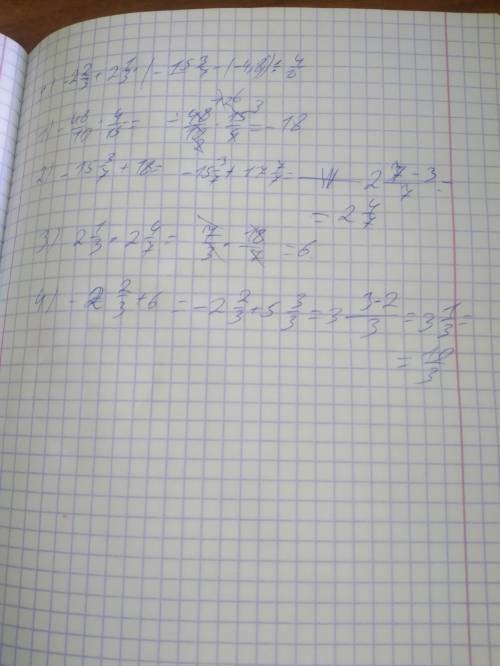 -2 2/3 + 2 1/3 · (-15 3/7 - (-4,8)) : 4/
1) - 48/10 : 4/15 = - 48/10 · 15/4 = -18
2) -15 3/7 + 18 = -15 3/7 + 17 7/7 = 2 7-3/7 =
= 2 4/7
3) 2 1/3 · 2 4/7 = 7/3 · 18/7 = 6
4) -2 2/3 + 6 = -2 2/3 + 5 3/3 = 3 3-2/3 = 3 1/3 =
= 10/3